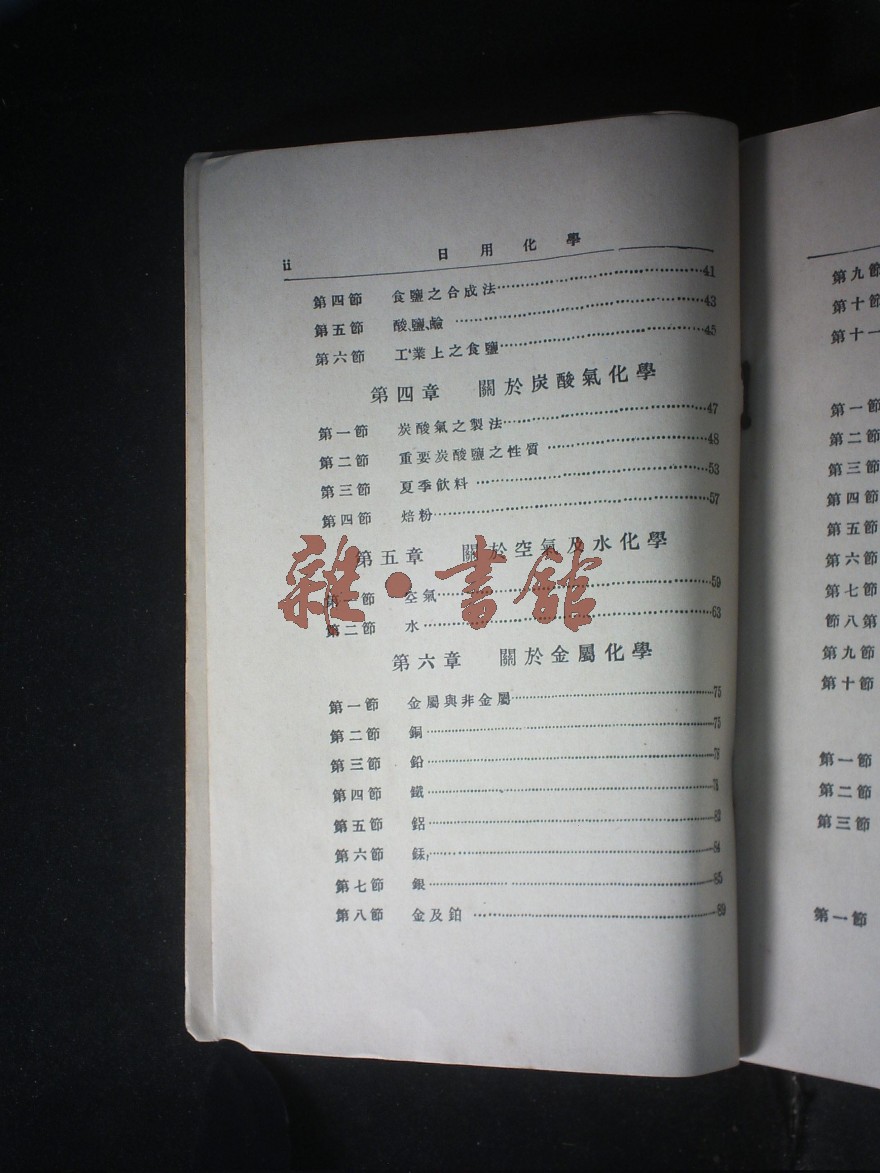 ii 日用化學
第四節 食鹽之合成法 41
第五節 酸、鹽、鹼 43
第六節 工業上之食鹽 45
第四章 關於炭酸氣化學
第一節 炭酸氣之製法 47
第二節 重要炭酸鹽之性質 48
第三節 夏季飲料 53
第四節 焙粉 57
第五章 關於空氣及水化學
第一節 空氣 59
第二節 水 63
第六章 關於金屬化學
第一節 金屬與非金屬 75
第二節 銅 75
第三節 鉛
第四節 鐵
第五節 鋁
第六節 84
第七節 銀 85
第八節 金及鉑 89
雜·書館
第九節
第十節
第十一
第一節
第二節
第三節
第四節
第五節
第六節
第七節
節八第
第九節
第十節
第一節
第二節
第三節
第一節